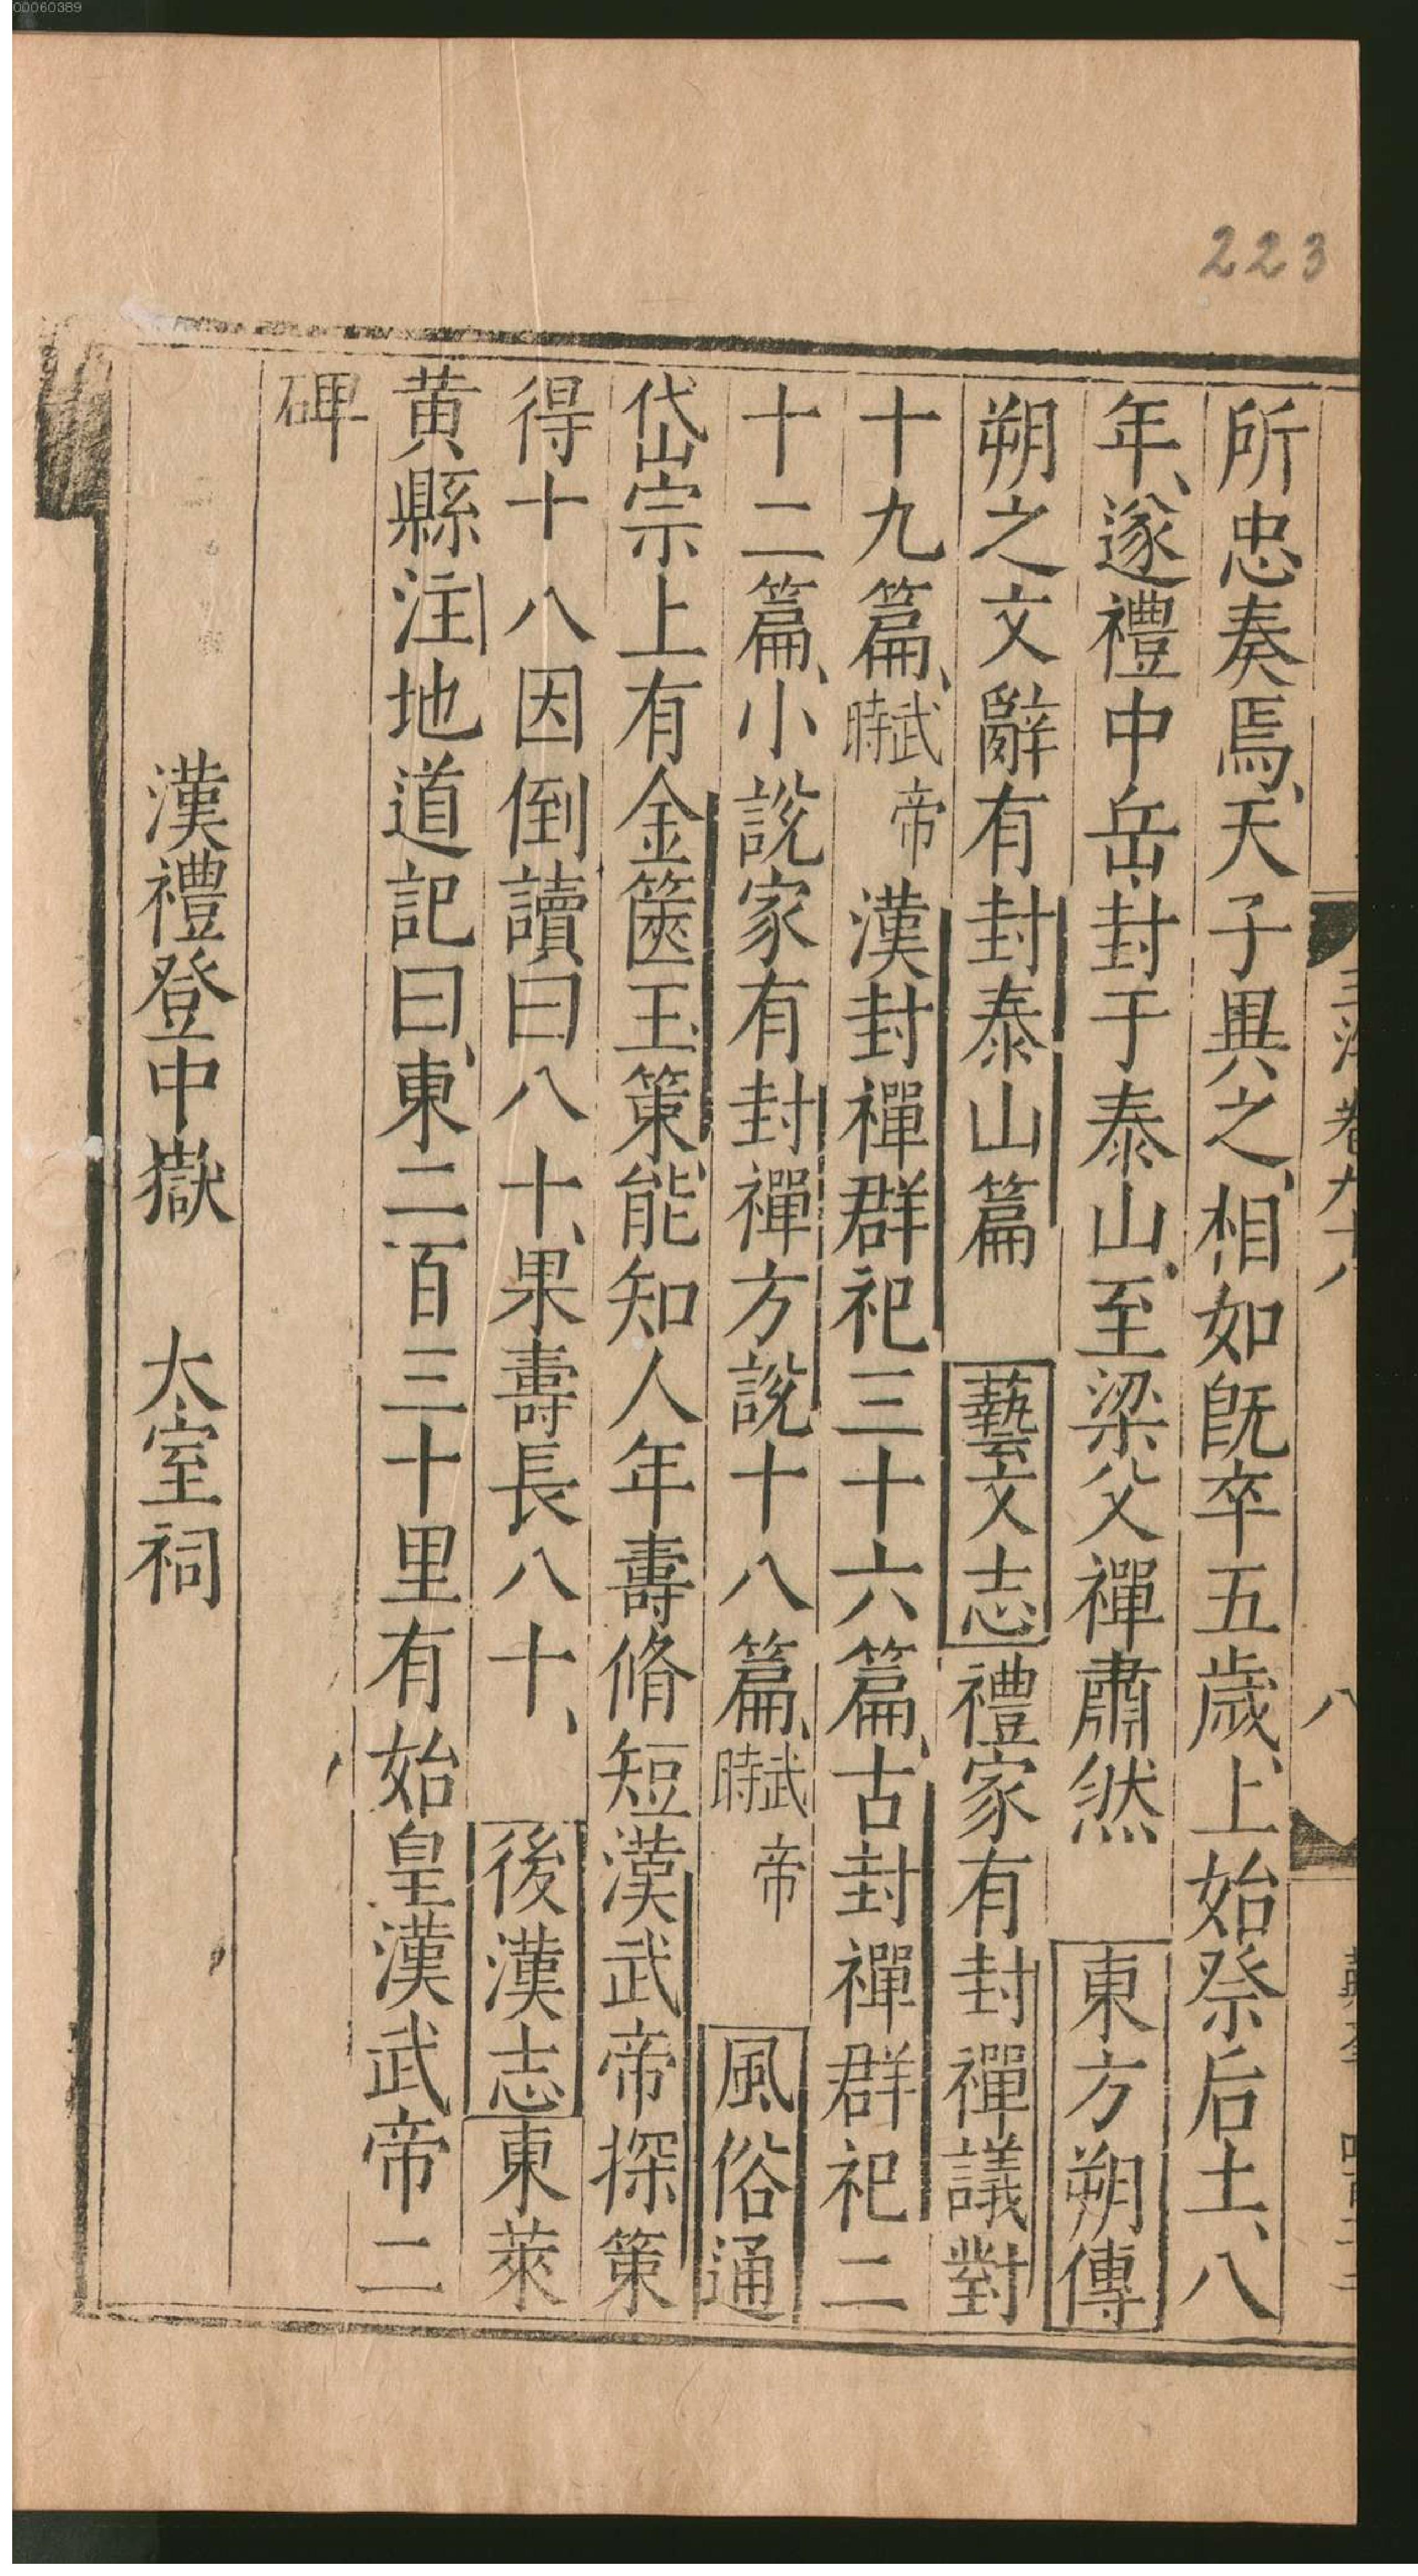 00060389
223
所忠奏焉、天子異之、相如旣卒五歲、上始祭后土、八
年、遂禮中岳、封于泰山、至梁父禪肅然 東方朔傳
朔之文辭有封泰山篇 藝文志禮家有封禪議對
十九篇、武帝時 漢封禪群祀三十六篇、古封禪群祀二
十二篇、小說家有封禪方說十八篇、武帝時 風俗通
岱宗上有金篋玉策、能知人年壽脩短漢武帝探策
得十八因倒讀曰八十、果壽長八十、 後漢志東萊
黄縣注地道記曰、東二百三十里有始皇漢武帝二
碑
漢禮登中嶽 太室祠